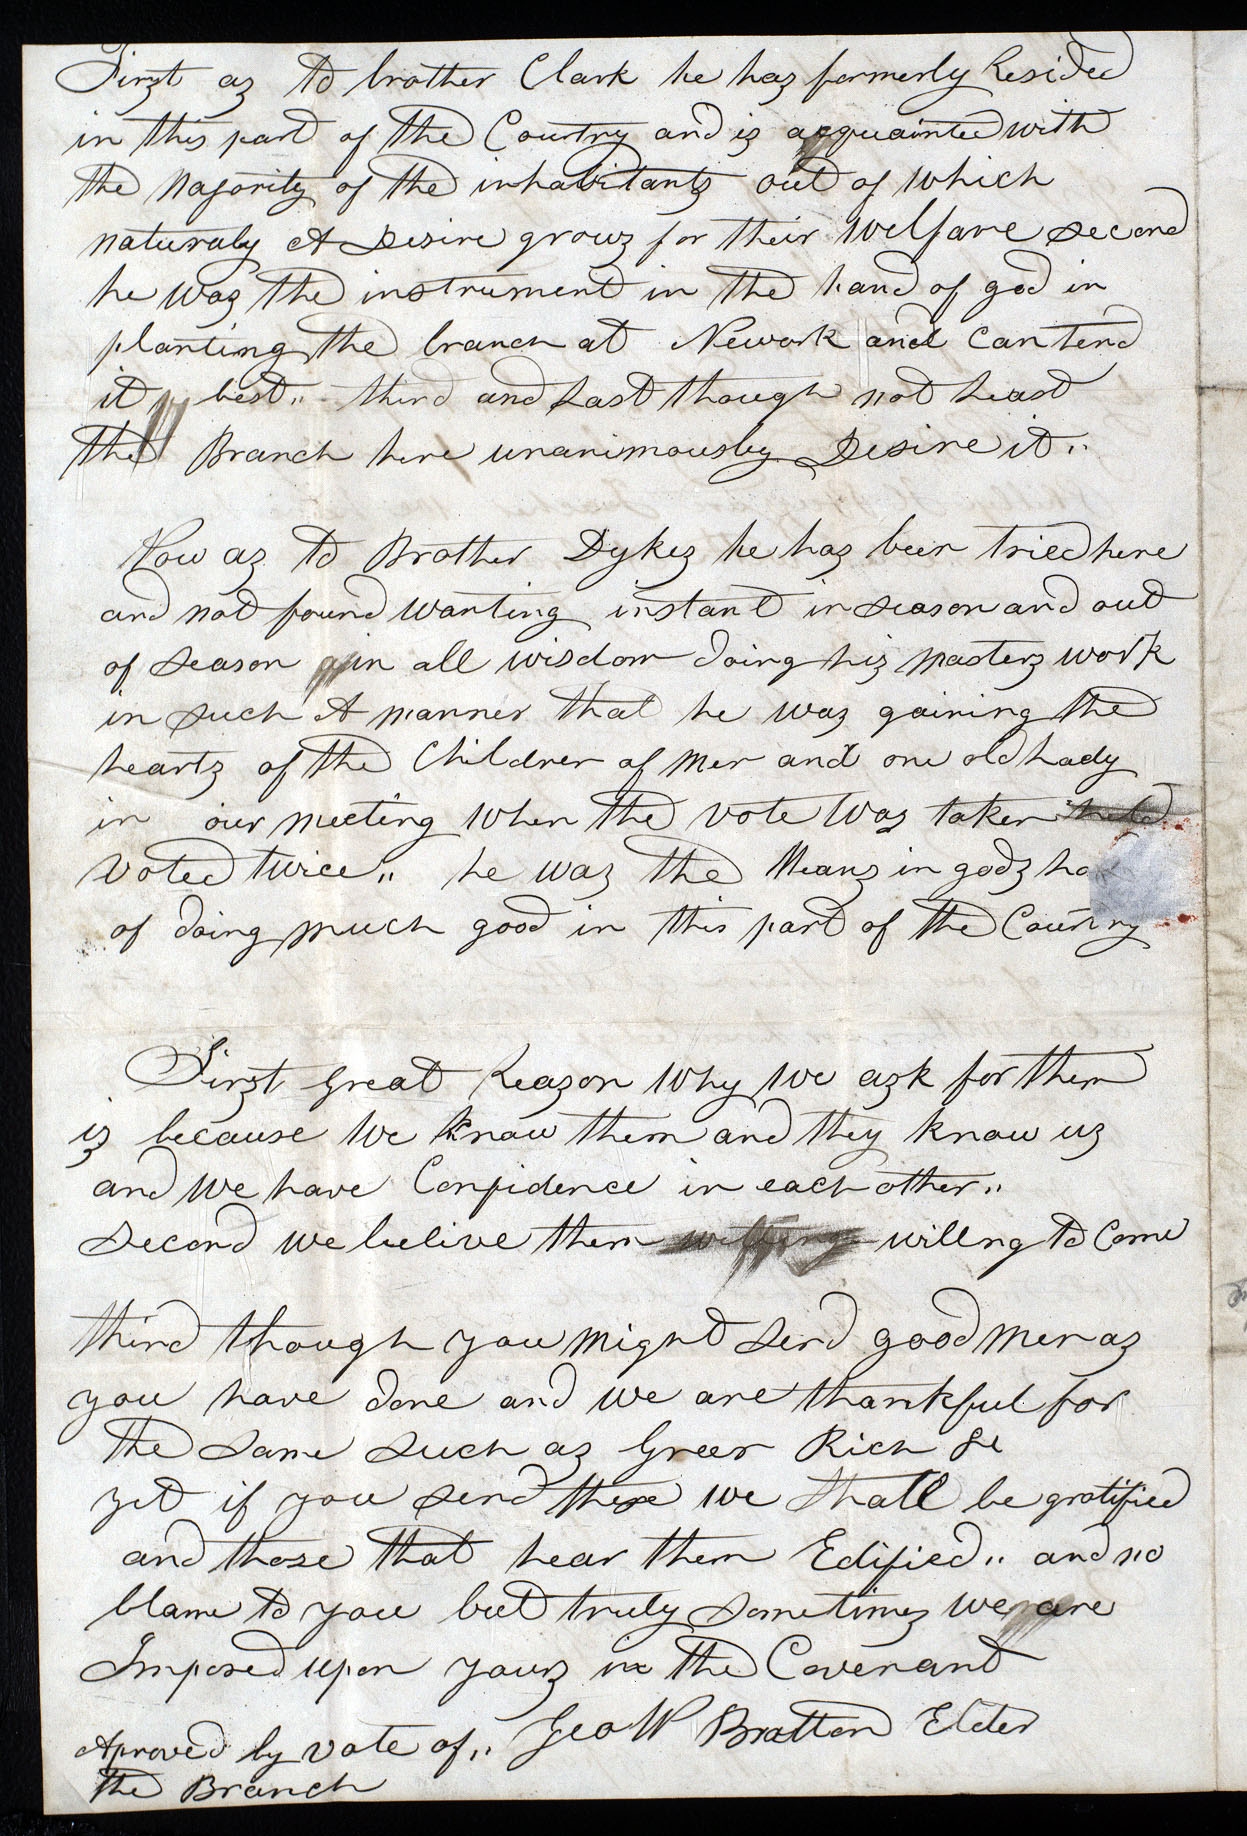 First as to brother Clark he has formerly Resided
in this part of the Country and is acquainted with
the Majority of the inhabitants out of which
naturaly A Desire grows for their Welfare second
he was the instrument in the hand of god in
planting the branch at Newark and can tend
it best,, third and Last though not Least
the Branch here unanimously Desire it,,
Now as to Brother Dykes he has been tried here
and not found wanting instant in season and out
of season in all wisdom doing his masters work
in such A manner that he was gaining the
hearts of the Children of Men and one old Lady
in our meeting when the vote was taken
voted twice,, he was the Means in gods
of doing much good in this part of the Country
First Great Reason Why We ask for them
is because We Know them and they know us
and We have Confidence in each other,,
Second we belive them willing willng to Come
third though you Might Send good Men as
you have done and we are thankful for
the same such as Green Rich &c
yet if you send these we shall be gratified
and those that hear them Edified,, and no
blame to you but truly sometimes we are
Imposed upon yours in the Covenant
Geo W Bratton Elder
Aproved by vote of,,
the Branch